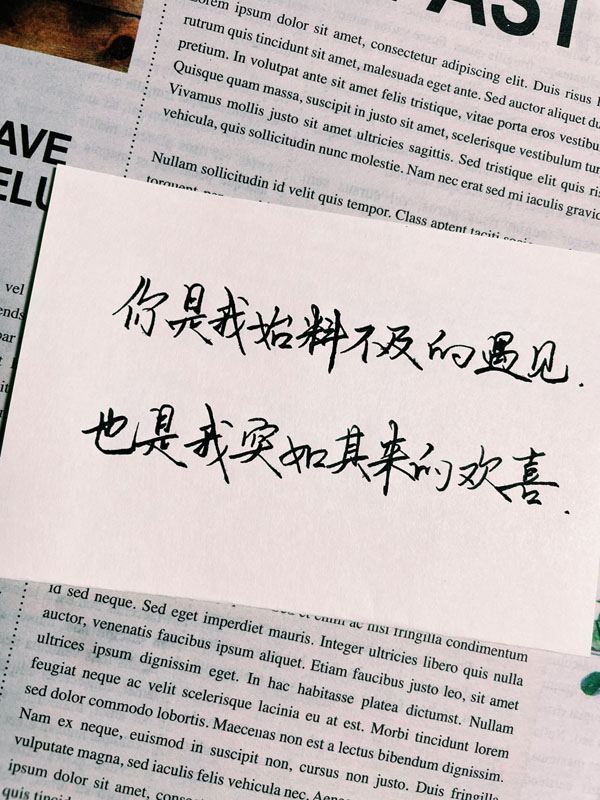 AST
Lorem ipsum dolor sit amet, consectetur adipiscing elit. Duis risus
rutrum quis tincidunt sit amet, malesuada eget ante. Sed auctor aliquet
pretium. In volutpat ante sit amet felis tristique, vitae porta eros vestibu
Quisque quam massa, suscipit in justo sit amet, scelerisque vestibulum tur
Vivamus mollis justo sit amet ultricies sagittis. Sed tristique elit quis ris
vehicula, quis sollicitudin nunc molestie. Nam nec erat sed mi iaculis gravid
Nullam sollicitudin id velit quis tempor. Class aptent taciti
torquent
AVE
ELU
vel
ends
par
你是我始料不及的遇见.
也是我突如其来的欢喜.
id sed neque. Sed eget imperdiet mauris. Integer ultricies libero quis nulla
auctor, venenatis faucibus ipsum aliquet. Etiam faucibus justo leo, sit amet
ultrices ipsum dignissim eget. In hac habitasse platea dictumst. Nullam
feugiat neque ac velit scelerisque lacinia eu at est. Morbi tincidunt lorem
sed dolor commodo lobortis. Maecenas non est a lectus bibendum dignissim.
Nam ex neque, euismod in suscipit non, cursus non justo. Duis fringilla
vulputate magna, sed iaculis felis vehicula nec. Aenean
ipsum dolor sit amet, consectetur
quis tincidunt